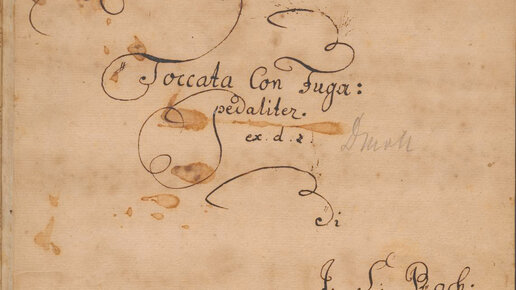 Toccata Con Fuga:
pedaliter.
ex. d. #.
Dmoll
di
J. S. Bach: